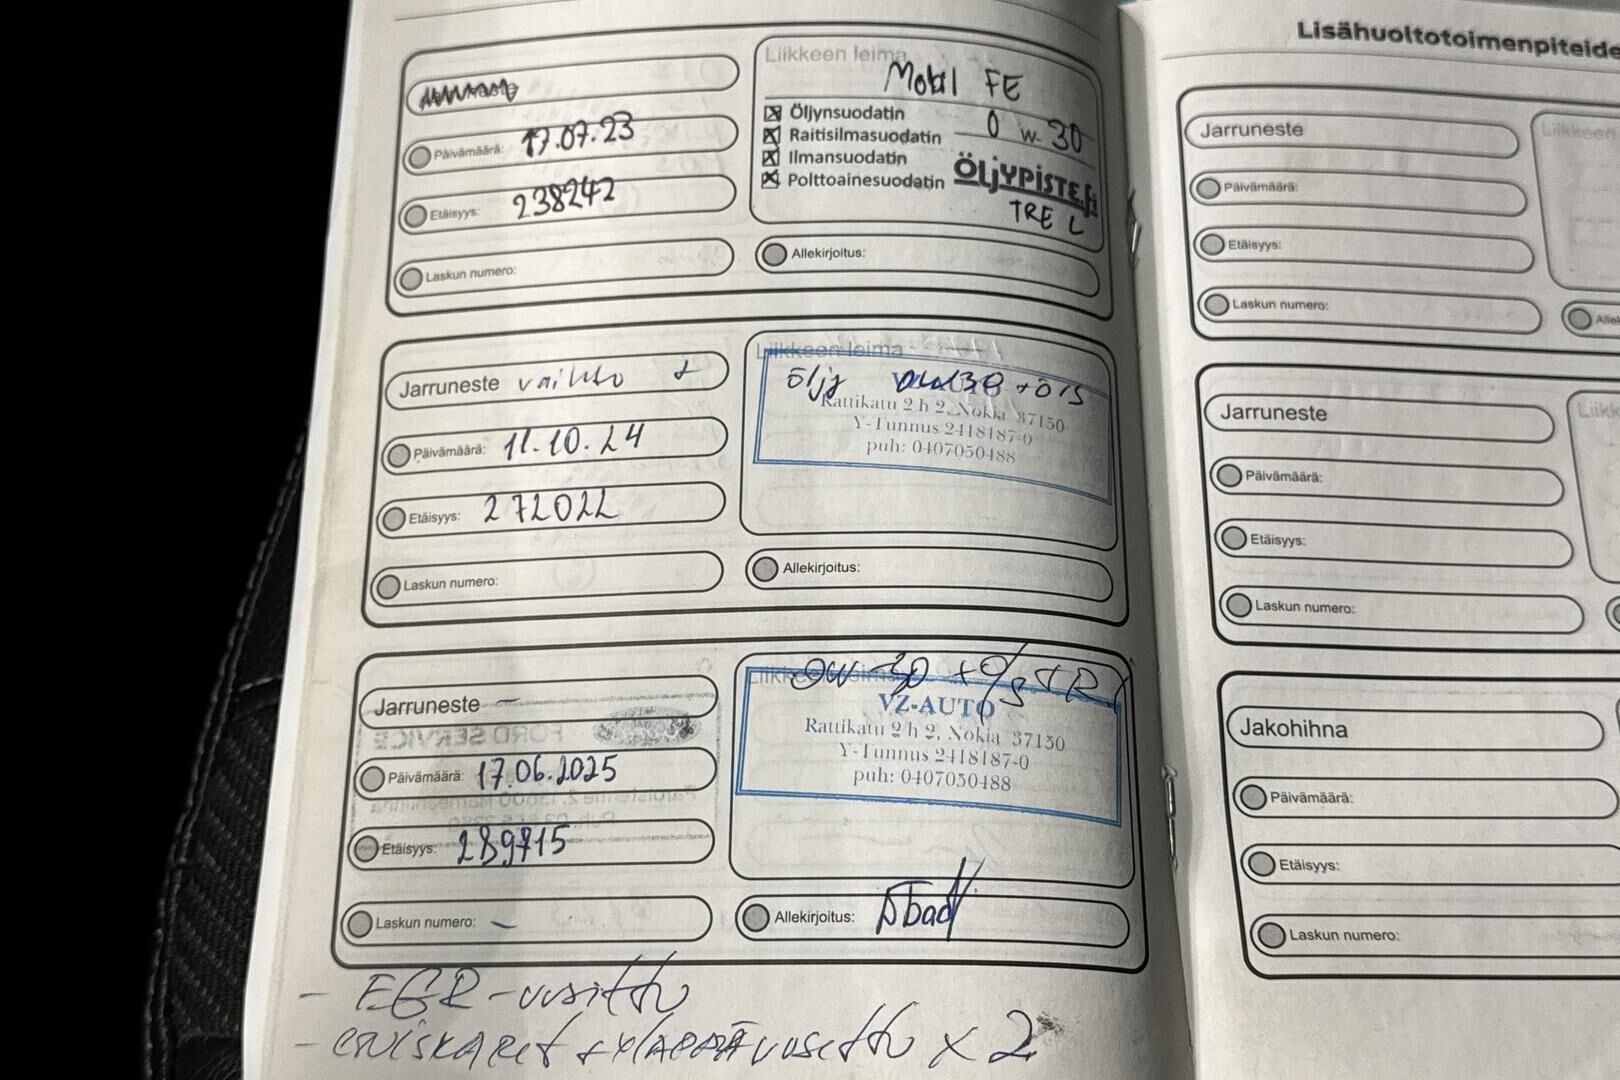 Päivämäärä: 17.07.23
Etäisyys: 238242
Laskun numero:
Liikkeen leima
Mobil FE
0 w-30
Öljynsuodatin
Raitisilmasuodatin
Ilmansuodatin
Polttoainesuodatin
ÖLJYPISTE.fi
TRE L
Allekirjoitus:
Jarruneste vaihto
Päivämäärä: 11.10.24
Etäisyys: 272022
Laskun numero:
Liikkeen leima
öljy
Rattikatu 2 h 2, Nokia 37150
Y-Tunnus 2418187-0
puh: 0407050488
Allekirjoitus:
Jarruneste –
Päivämäärä: 17.06.2025
Etäisyys: 289715
Laskun numero: –
0W-30
VZ-AUTO
Rattikatu 2 h 2, Nokia 37150
Y-Tunnus 2418187-0
puh: 0407050488
Allekirjoitus:
FORD SERVICE
- EGR-uusittu
uusittu x 2
Lisähuoltotoimenpiteide
Jarruneste
Päivämäärä:
Etäisyys:
Laskun numero:
Liikkeen
Allek
Jarruneste
Päivämäärä:
Etäisyys:
Laskun numero:
Liikk
Jakohihna
Päivämäärä:
Etäisyys:
Laskun numero: